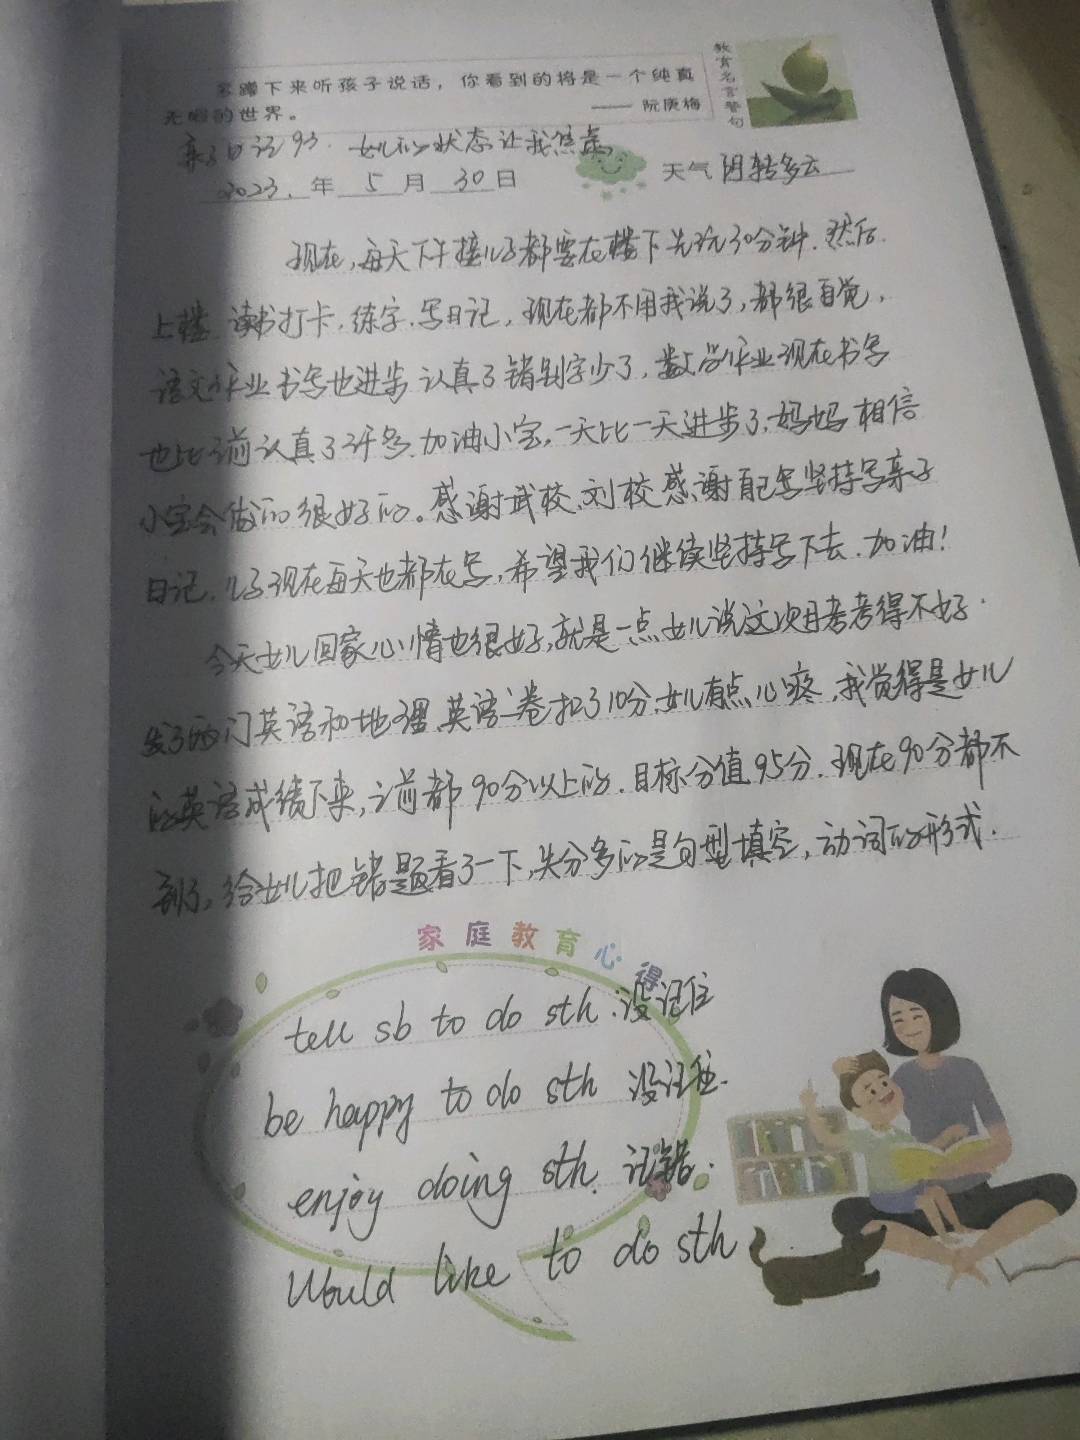 多蹲下来听孩子说话，你看到的将是一个纯真
无暇的世界。 —— 阮庚梅
教育名言警句
亲子日记93. 女儿的状态让我焦虑
2023.年 5 月 30日 天气 阴转多云
现在,每天下午接儿子都要在楼下先玩30分钟.然后.
上楼.读书打卡.练字.写日记,现在都不用我说了,都很自觉,
语文作业书写也进步 认真了错别字少了,数学作业现在书写
也比之前认真了许多.加油小宝,一天比一天进步了.妈妈相信
小宝会做的很好的。感谢武校、刘校感谢自己坚持写亲子
日记,儿子现在每天也都在写,希望我们继续坚持写下去.加油!
今天女儿回家心情也很好,就是一点女儿说这次月考考得不好.
发了两门英语和地理.英语一卷扣了10分.女儿有点心疼,我觉得是女儿
的英语成绩下来,之前都90分以上的.目标分值95分.现在90分都不
到了,给女儿把错题看了一下,失分多的是句型填空,动词的形式.
家庭教育心得
tell sb to do sth.没记住
be happy to do sth 没记住.
enjoy doing sth. 记错.
Would like to do sth